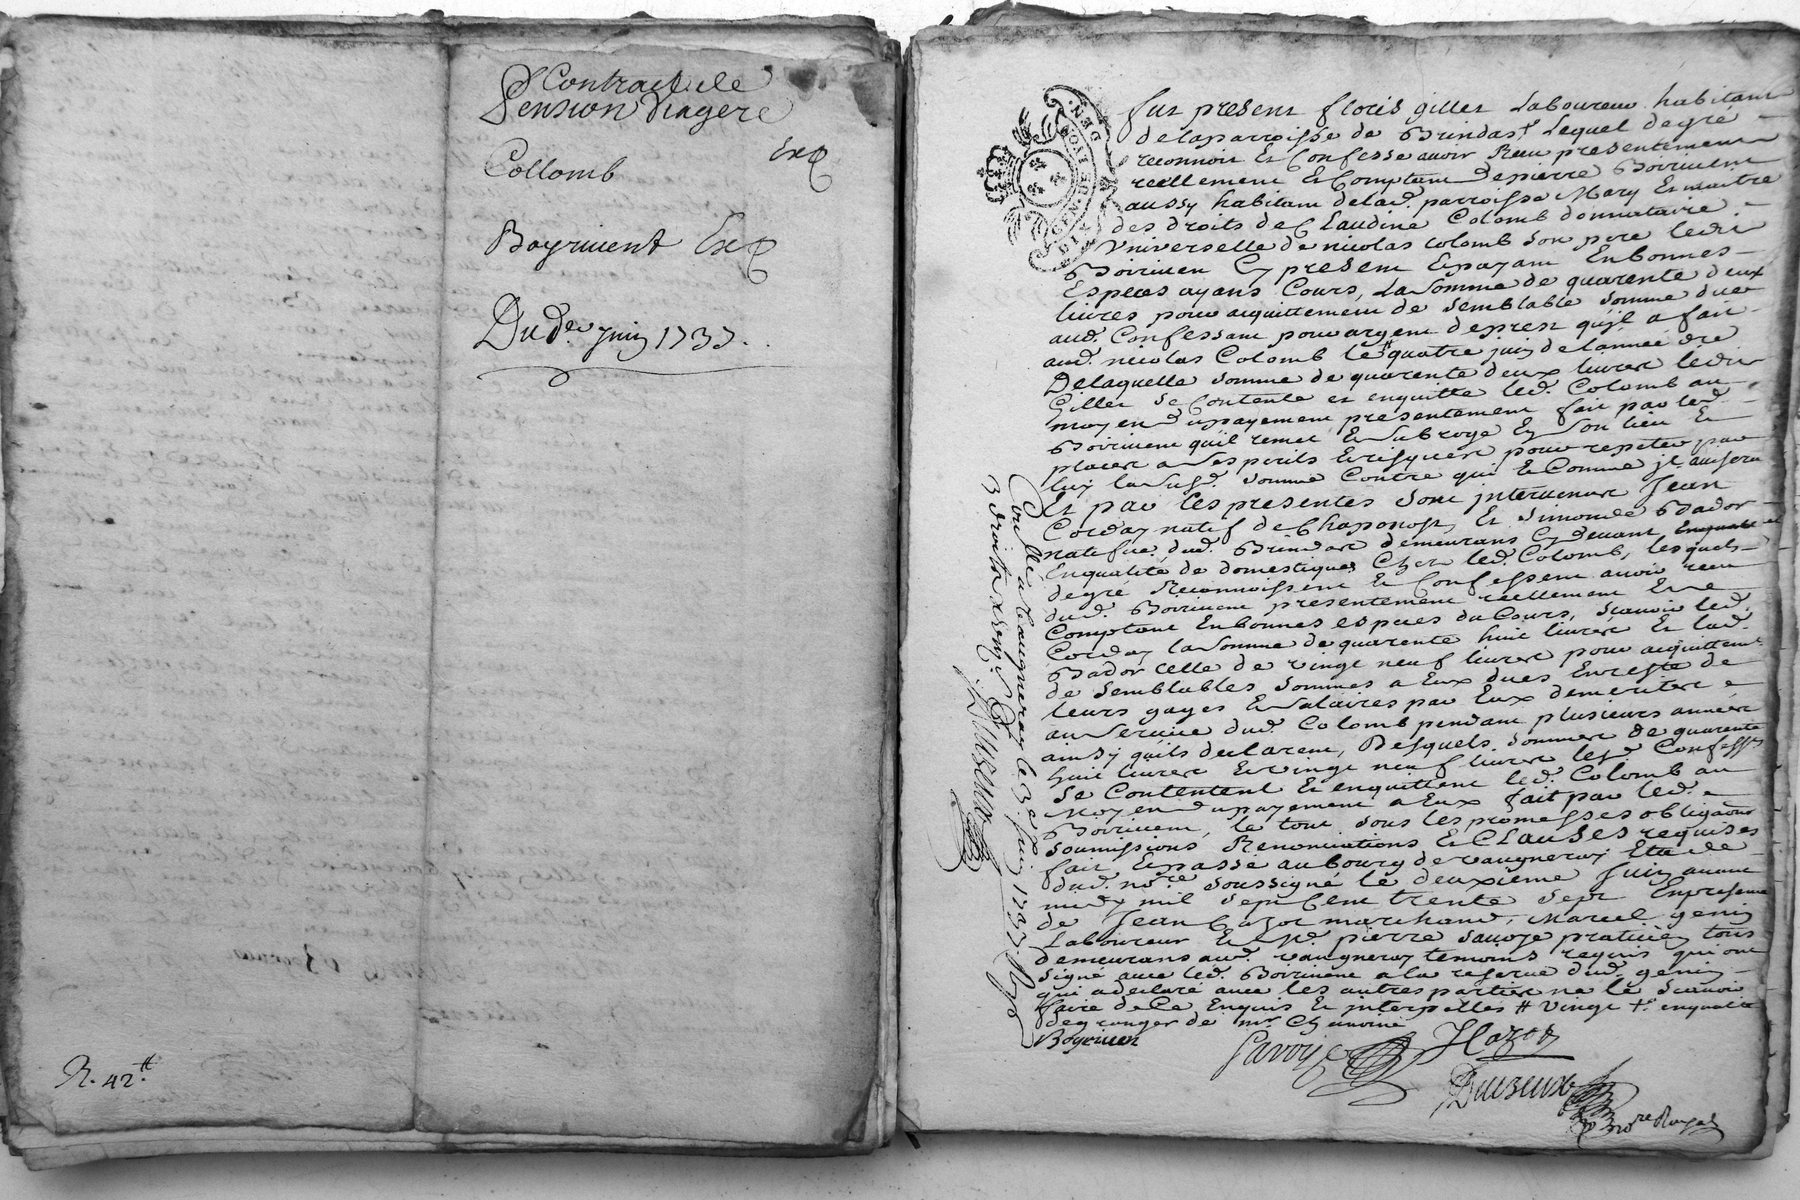 Contract de
Pension Viagere
Collomb Exp
Boyrivent Exp
Du d.e juin 1737.
R. 42 tt
GEN. DE LYON
fut present floris gillet Laboureur habitant
de la parroisse de Brindas lequel de gré
reconnoit et Confesse avoir Receu presentement
reellement et Comptant de pierre Boirivent
aussy habitant de lad. parroisse Mary et maitre
des droits de Claudine Colomb donnataire
Universelle de nicolas Colomb son pere ledit
Boiriven Cy present et payant En bonnes
Especes ayans Cours, La Somme de quarente deux
livres pour acquittement de semblable somme due
aud. Confessant pour argent de prest qu'jl a fait
aud. nicolas Colomb le quatre juin de l'année
De laquelle somme de quarente deux livres ledit
Gillet se Contente et enquitte led. Colomb au
moyen du payement presentement fait par led.
Boirivent qu'il remet et subroge En son lieu et
place a ses perils et risques pour repeter par
luy la susd. somme Contre qui et Comme jl avisera
Et par Ces presentes sont jntervenus Jean
Corday natif de Chaponost, et simonde Bador
natifve dud. Brindas demeurans Cy devant
En qualité de domestiques Chez led. Colomb, lesquels
de gré Reconnoissent et Confessent avoir receu
dud. Boirivent presentement reellement et
Comptant En bonnes especes du Cours, scavoir led.
Corday la somme de quarente huit livres et lad.
Bador celle de vingt neuf livres pour acquittement
de semblables sommes a Eux dues En reste de
leurs gages et salaires par Eux demerités
au service dud. Colomb pendant plusieurs années
ainsy quils declarent, Desquels sommes de quarente
huit livres et vingt neuf livres lesd. Confessans
se Contentent et enquittent led. Colomb au
Moyen du payement a Eux fait par led.
Boirivent, le tout sous les promesses obligations
soumissions Renonciations et CLAUSES requises
fait et passé au bourg de vaugneray Etude
dud. no.re soussigné le deuxieme Juin avant
midy mil sept Cent trente sept En presence
de Jean marchand, Marcel genin
Laboureur et Sr. pierre savoye praticien tous
demeurans aud. vaugneray temoins requis qui ont
signé avec led. Boirivent a la reserve dud. genin
qui a declaré avec les autres parties ne le scavoir
faire de Ce Enquis et jnterpellés vingt en qualité
de granger de mr.
Boyriven
Savoye
Duiseux
no.re Royal
Con.llé a Vaugneray le 3e Juin 1737. Reçu